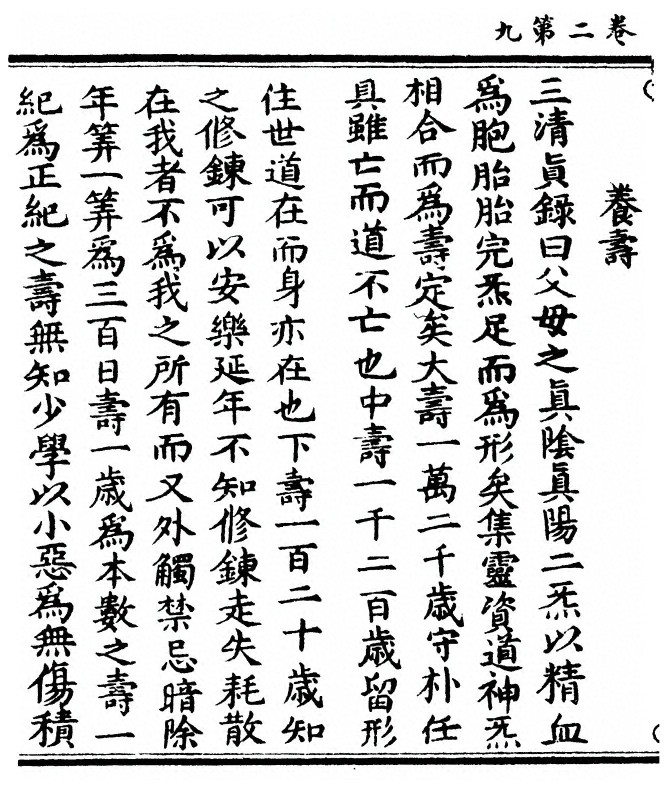 卷二第九
養壽
三清眞錄曰父母之眞陰眞陽二炁以精血
爲胞胎胎完炁足而爲形矣集靈資道神炁
相合而爲壽定矣大壽一萬二千歲守朴任
具雖亡而道不亡也中壽一千二百歲留形
住世道在而身亦在也下壽一百二十歲知
之修鍊可以安樂延年不知修鍊走失耗散
在我者不爲我之所有而又外觸禁忌暗除
年筭一筭爲三百日壽一歲爲本數之壽一
紀爲正紀之壽無知少學以小惡爲無傷積